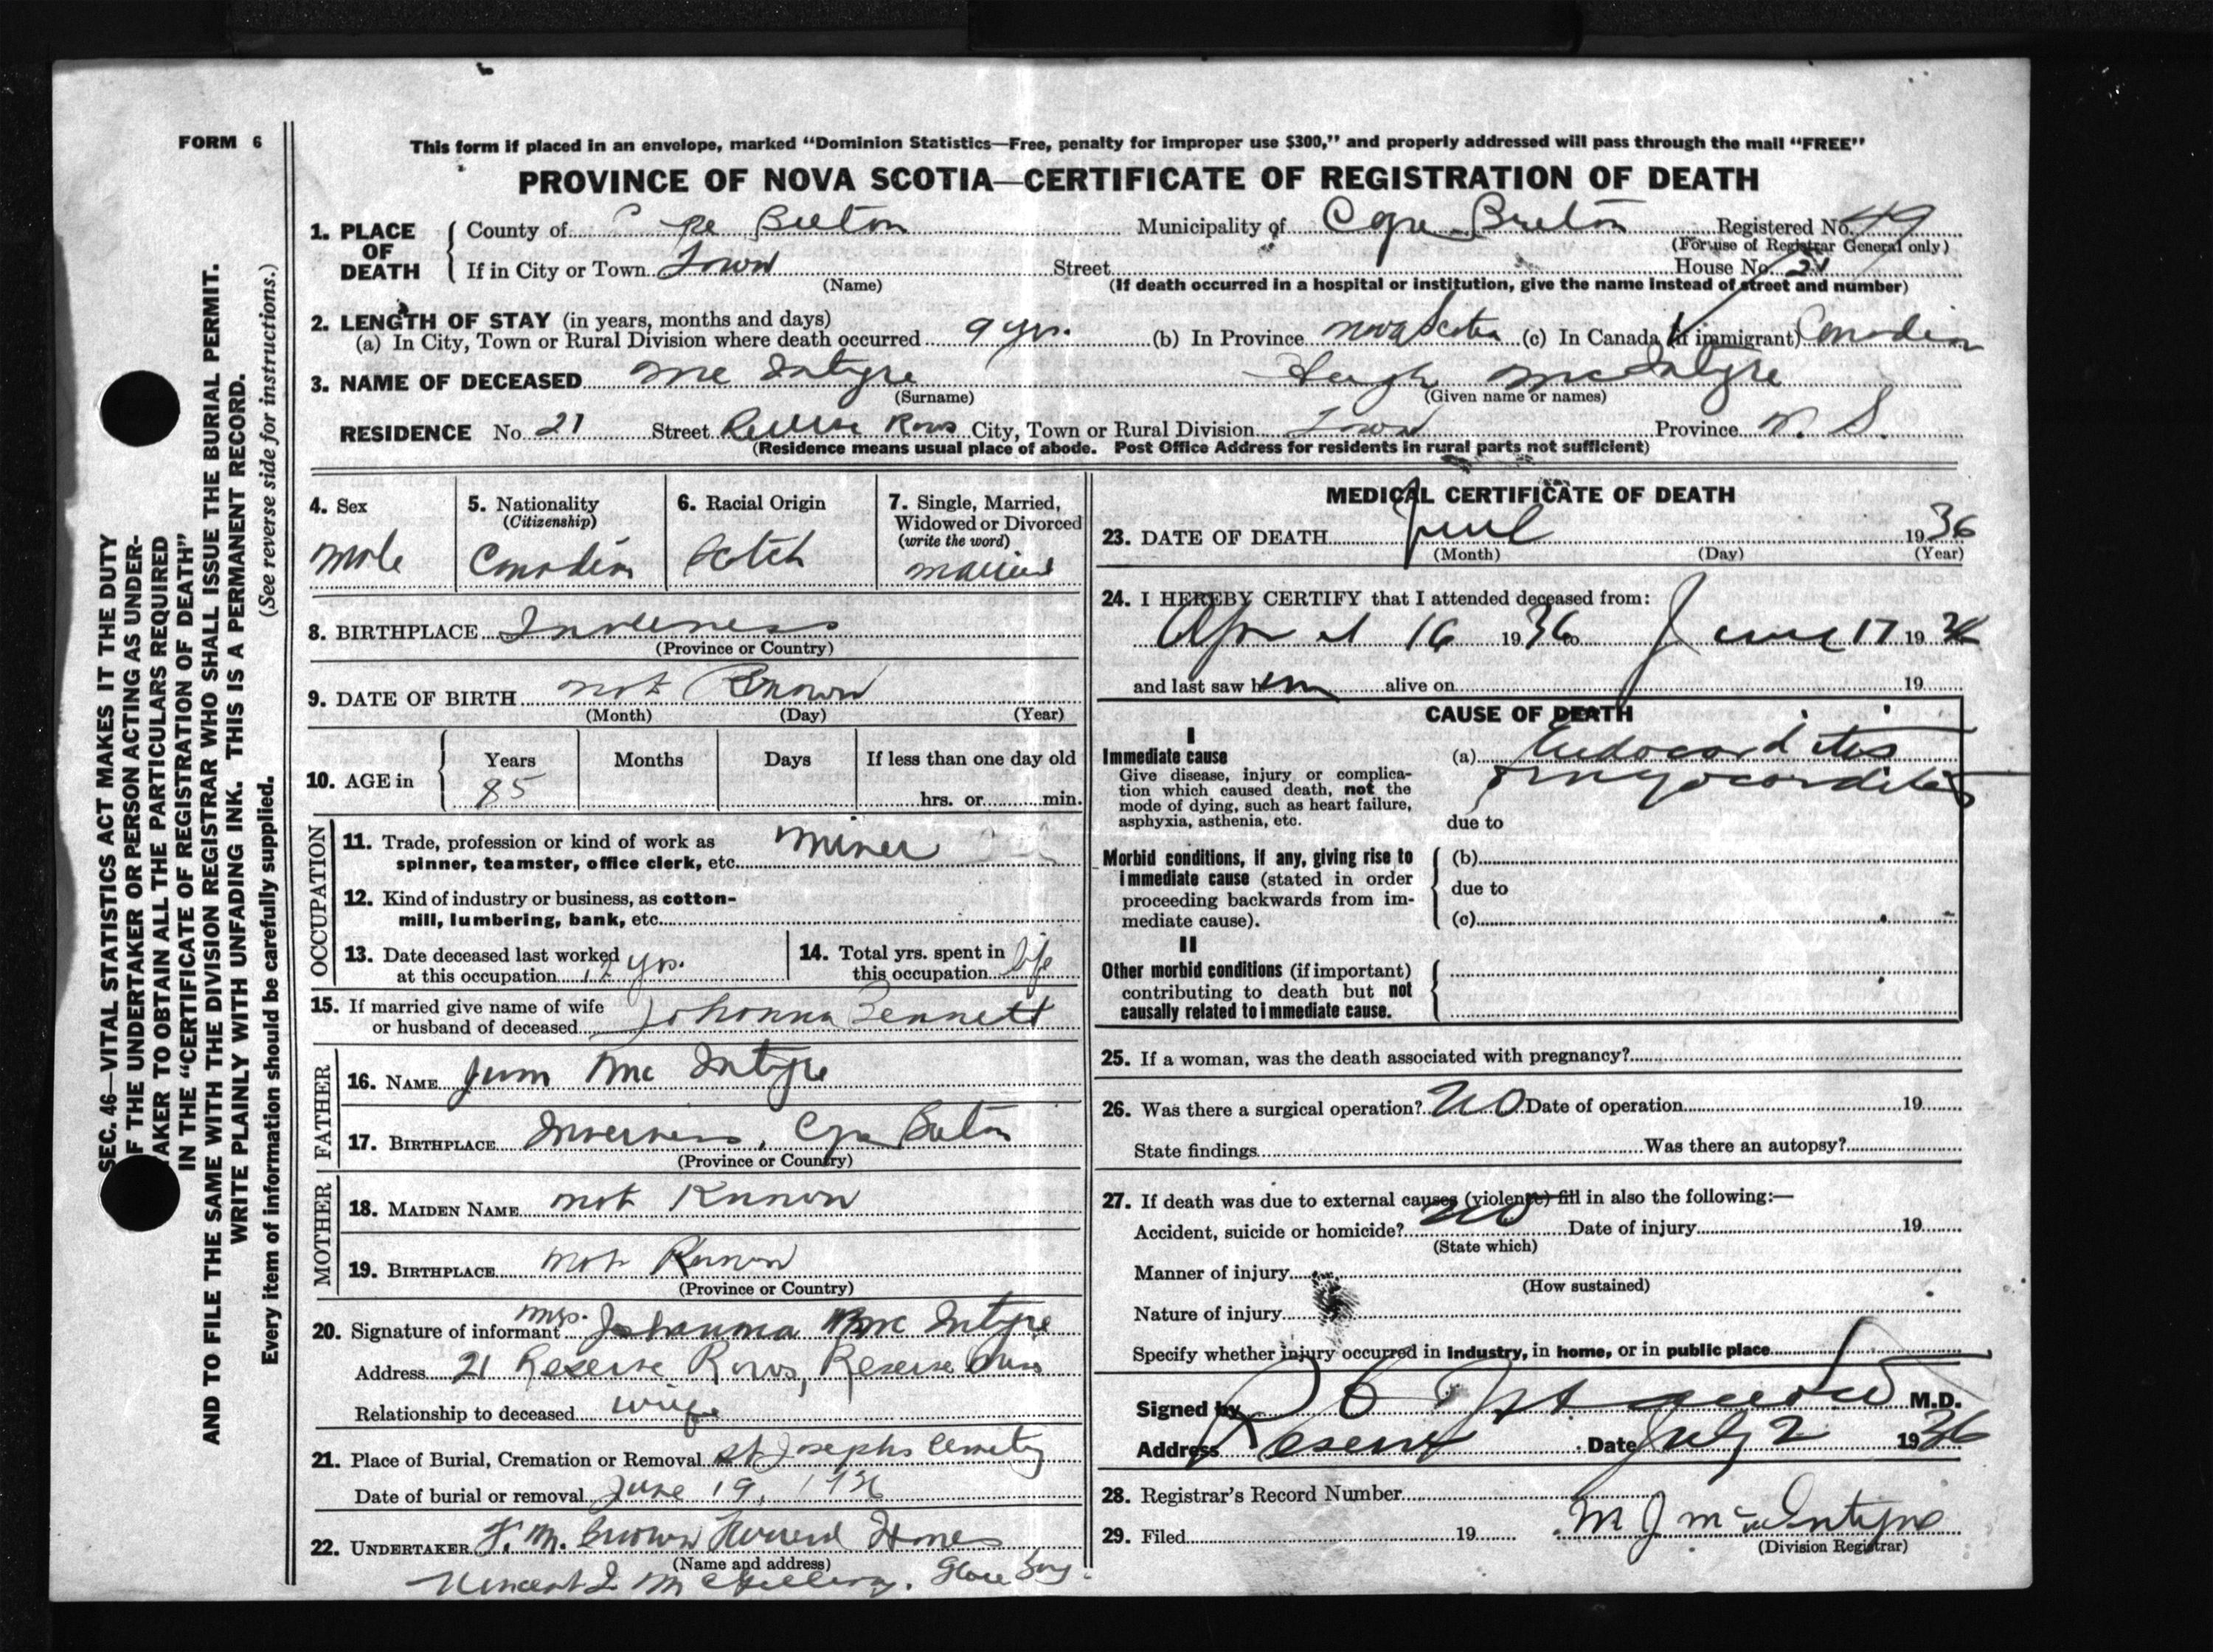 FORM 6
This form if placed in an envelope, marked "Dominion Statistics—Free, penalty for improper use $300," and properly addressed will pass through the mail "FREE"
PROVINCE OF NOVA SCOTIA—CERTIFICATE OF REGISTRATION OF DEATH
1. PLACE OF DEATH County of Cape Breton Municipality of Cape Breton Registered No. 49
(For use of Registrar General only)
If in City or Town Town Street House No. 21
(Name)
(If death occurred in a hospital or institution, give the name instead of street and number)
2. LENGTH OF STAY (in years, months and days)
(a) In City, Town or Rural Division where death occurred 9 yrs. (b) In Province Nova Scotia (c) In Canada (if immigrant) Canadian
3. NAME OF DECEASED Mc Intyre Hugh McIntyre
(Surname) (Given name or names)
RESIDENCE No. 21 Street Reserve Rows City, Town or Rural Division Town Province N. S.
(Residence means usual place of abode. Post Office Address for residents in rural parts not sufficient)
4. Sex
Male
5. Nationality
(Citizenship)
Canadian
6. Racial Origin
Scotch
7. Single, Married,
Widowed or Divorced
(write the word)
Married
8. BIRTHPLACE Inverness
(Province or Country)
9. DATE OF BIRTH not Known
(Month) (Day) (Year)
10. AGE in Years Months Days If less than one day old
85 hrs. or min.
OCCUPATION
11. Trade, profession or kind of work as
spinner, teamster, office clerk, etc. Miner
12. Kind of industry or business, as cotton-
mill, lumbering, bank, etc.
13. Date deceased last worked
at this occupation 12 yrs.
14. Total yrs. spent in
this occupation life
15. If married give name of wife
or husband of deceased Johanna Bennett
FATHER
16. NAME Jim Mc Intyre
17. BIRTHPLACE Inverness, Cape Breton
(Province or Country)
MOTHER
18. MAIDEN NAME not Known
19. BIRTHPLACE not Known
(Province or Country)
20. Signature of informant Mrs. Johanna Mc Intyre
Address 21 Reserve Rows, Reserve Mines
Relationship to deceased wife
21. Place of Burial, Cremation or Removal St Josephs Cemetery
Date of burial or removal June 19, 1936
22. UNDERTAKER F. M. Brown Funeral Homes
(Name and address)
Vincent J. McGillivray. Glace Bay.
MEDICAL CERTIFICATE OF DEATH
23. DATE OF DEATH June 1936
(Month) (Day) (Year)
24. I HEREBY CERTIFY that I attended deceased from:
April 16 1936 to June 17 1936
and last saw him alive on 19
CAUSE OF DEATH
I
Immediate cause
Give disease, injury or complica-
tion which caused death, not the
mode of dying, such as heart failure,
asphyxia, asthenia, etc.
(a) Endocarditis
+ myocarditis
due to
Morbid conditions, if any, giving rise to
immediate cause (stated in order
proceeding backwards from im-
mediate cause).
(b)
due to
(c)
II
Other morbid conditions (if important)
contributing to death but not
causally related to immediate cause.
25. If a woman, was the death associated with pregnancy?
26. Was there a surgical operation? no Date of operation 19
State findings Was there an autopsy?
27. If death was due to external causes (violence) fill in also the following:—
Accident, suicide or homicide? no Date of injury 19
(State which)
Manner of injury
(How sustained)
Nature of injury
Specify whether injury occurred in industry, in home, or in public place
Signed by M.D.
Address Reserve Date July 2 1936
28. Registrar's Record Number
29. Filed 19 M J McIntyre
(Division Registrar)
SEC. 46—VITAL STATISTICS ACT MAKES IT THE DUTY
OF THE UNDERTAKER OR PERSON ACTING AS UNDER-
TAKER TO OBTAIN ALL THE PARTICULARS REQUIRED
IN THE "CERTIFICATE OF REGISTRATION OF DEATH"
AND TO FILE THE SAME WITH THE DIVISION REGISTRAR WHO SHALL ISSUE THE BURIAL PERMIT.
WRITE PLAINLY WITH UNFADING INK. THIS IS A PERMANENT RECORD.
Every item of information should be carefully supplied. (See reverse side for instructions.)